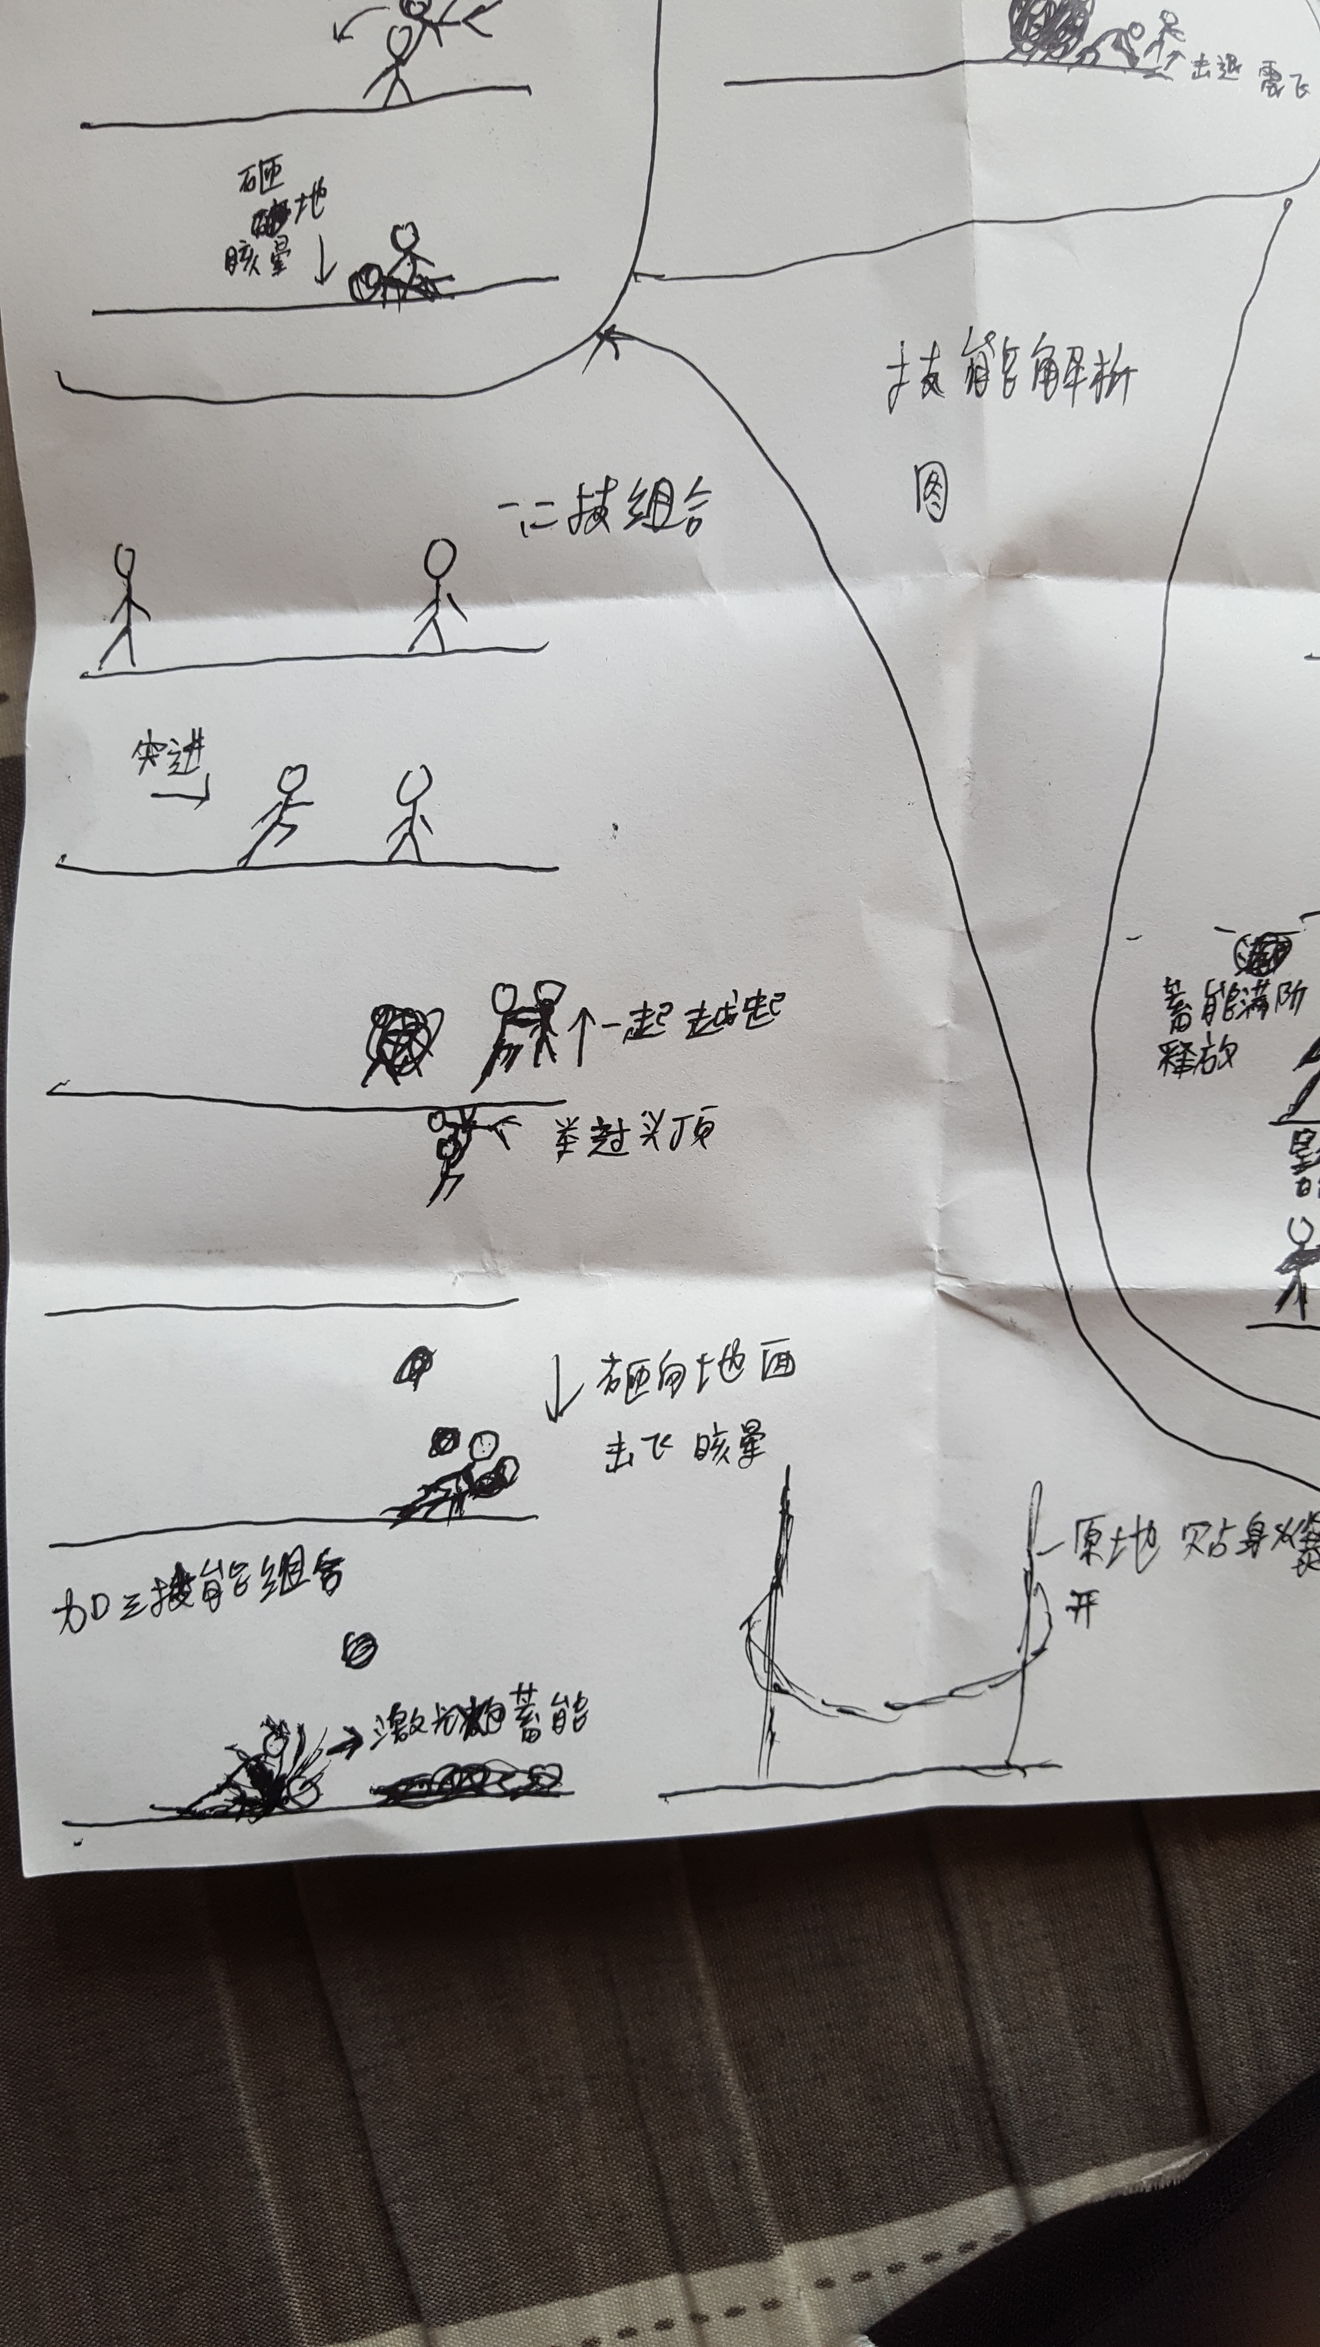 击退 震飞
砸
地
眩晕
技能解析
图
一二技组合
突进
一起越起
举过头顶
蓄能满阶
释放
砸向地面
击飞 眩晕
原地 贴身
开
加三技能组合
激光炮蓄能